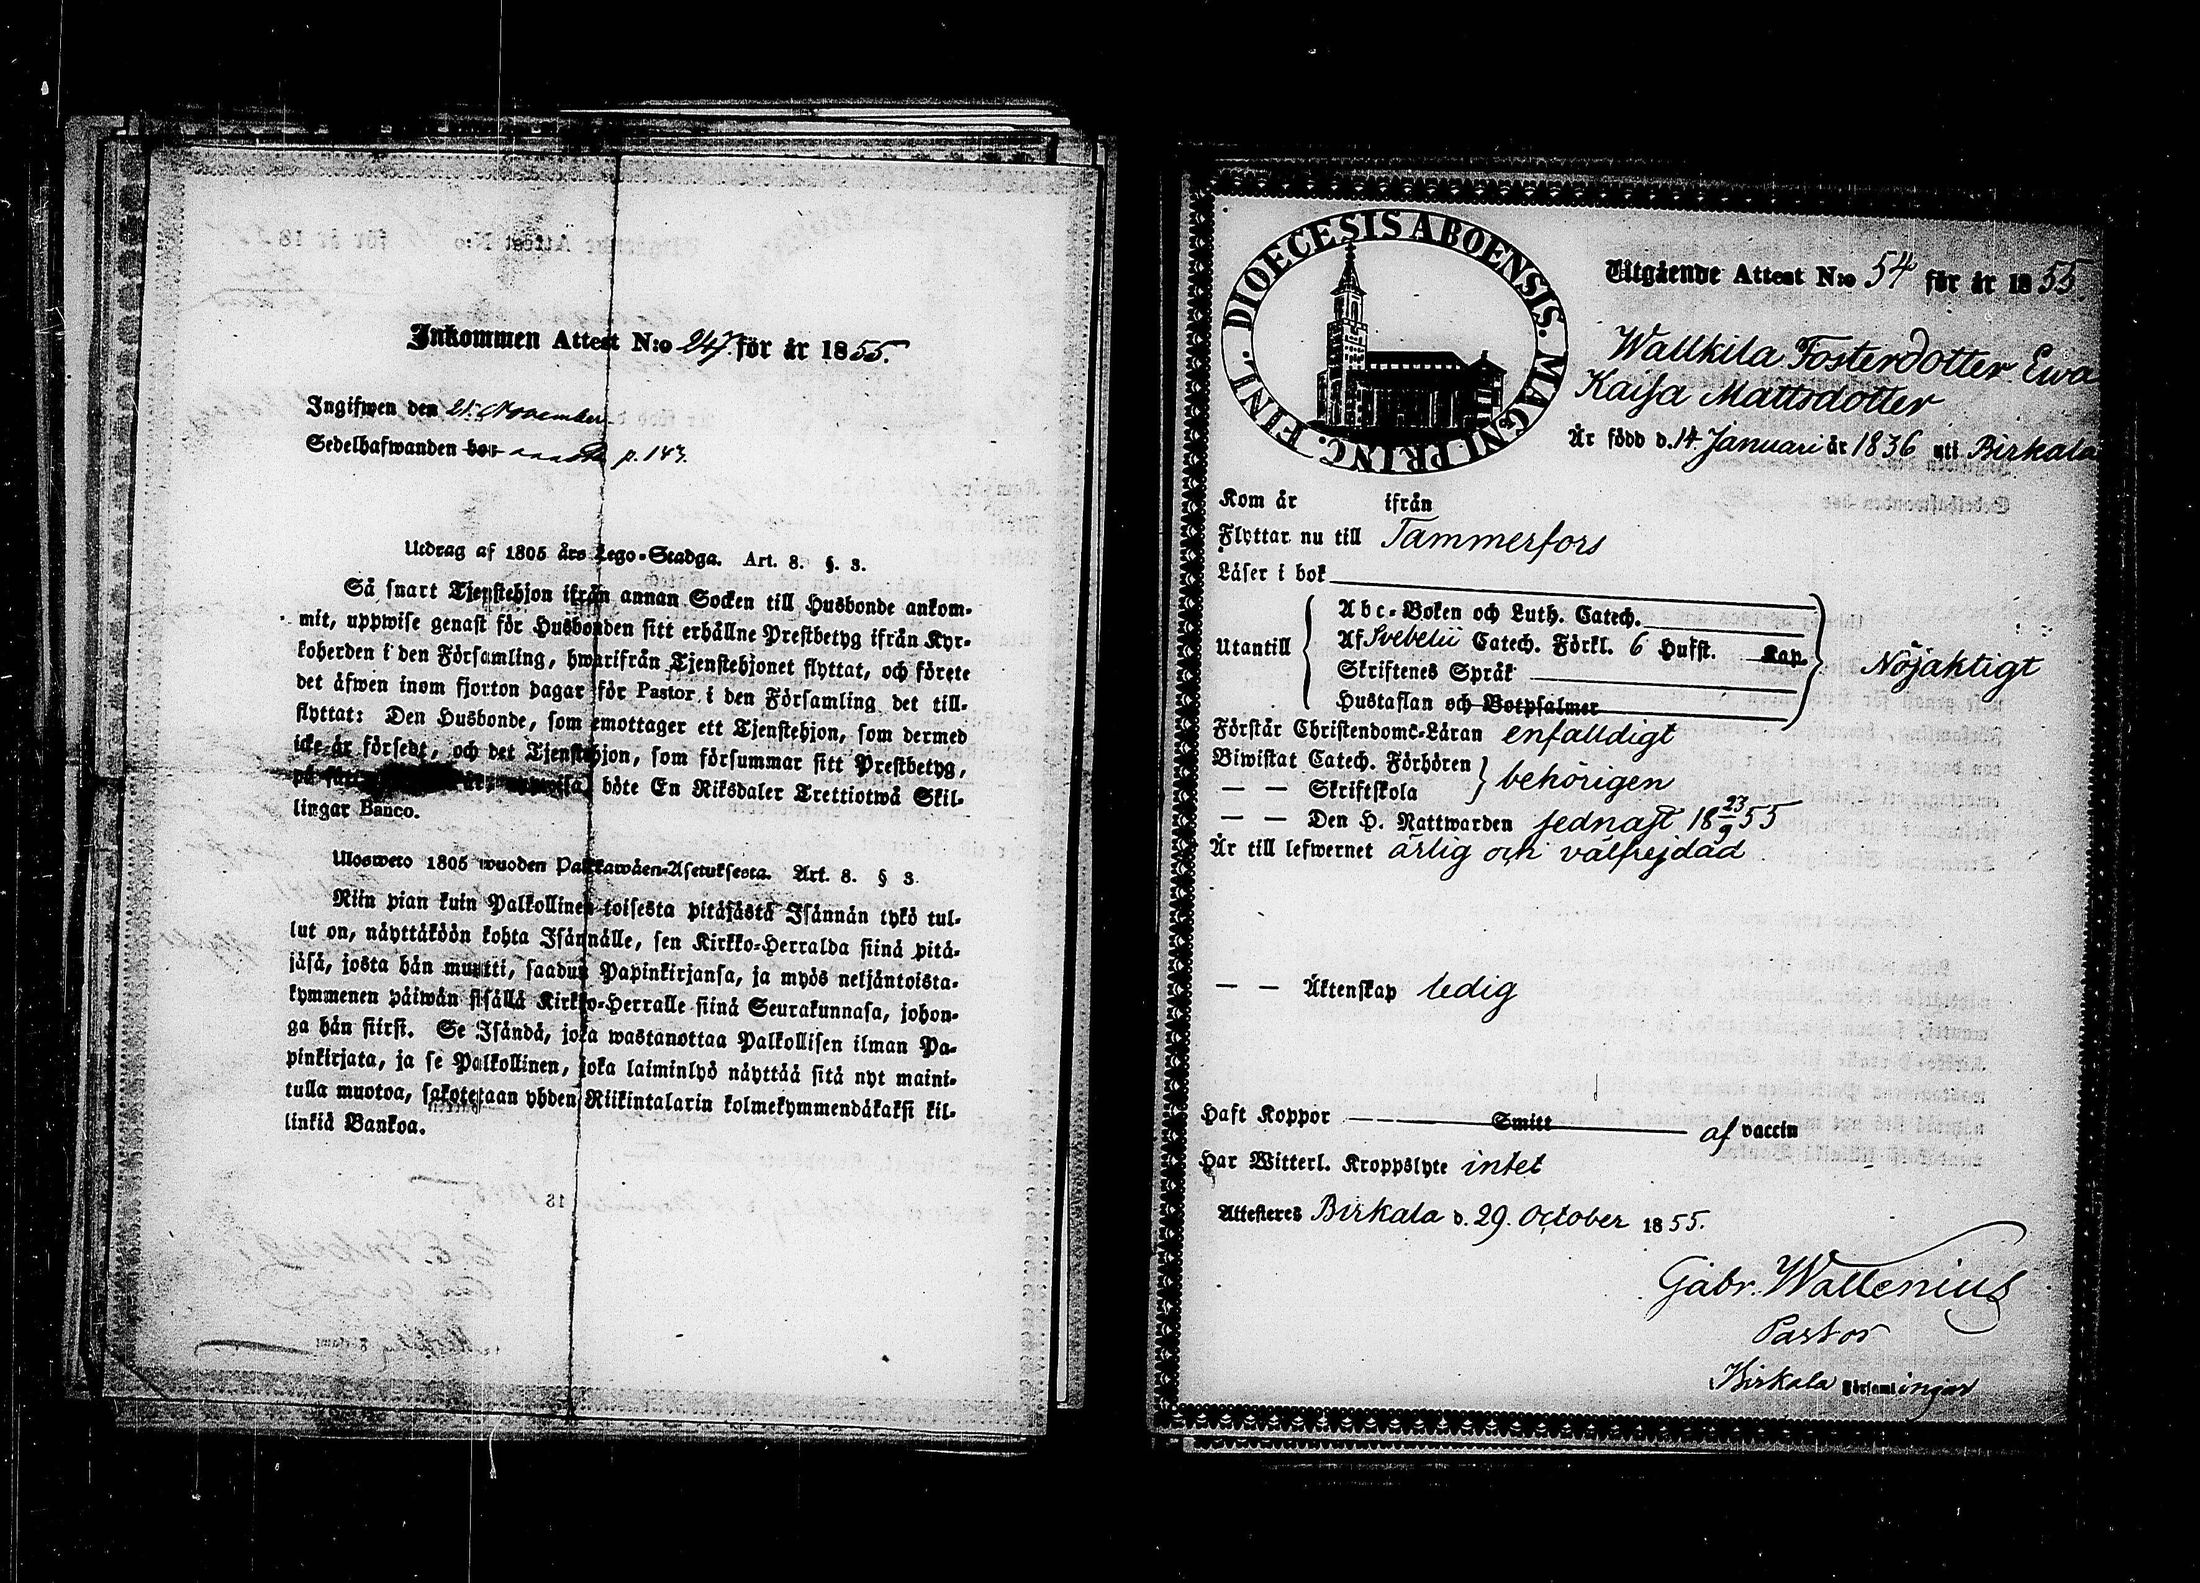 Inkommen Attest N:o 247. för år 1855.
Ingifwen den 21. November
Sedelhafwanden bor p. 143.
Utdrag af 1805 års Lego-Stadga. Art. 8. §. 3.
Så snart Tjenstehjon ifrån annan Socken till Husbonde ankom-
mit, uppwise genast för Husbonden sitt erhållne Prestbetyg ifrån Kyr-
koherden i den Församling, hwarifrån Tjenstehjonet flyttat, och förete
det äfwen inom fjorton dagar för Pastor i den Församling det till-
flyttat: Den Husbonde, som emottager ett Tjenstehjon, som dermed
icke är försedt, och det Tjenstehjon, som försummar sitt Prestbetyg,
på sätt böte En Riksdaler Trettiotwå Skil-
lingar Banco.
Ulosweto 1805 wuoden Palkkawäen-Asetuksesta. Art. 8. § 3.
Niin pian kuin Palkollinen toisesta pitäjästä Isännän tykö tul-
lut on, näyttäköön kohta Isännälle, sen Kirkko-Herralda siinä pitä-
jäsä, josta hän muutti, saadun Papinkirjansa, ja myös neljäntoista-
kymmenen päiwän sisällä Kirkko-Herralle siinä Seurakunnasa, johon-
ga hän siirsi. Se Isändä, joka wastanottaa Palkollisen ilman Pa-
pinkirjata, ja se Palkollinen, joka laiminlyö näyttää sitä nyt maini-
tulla muotoa, sakotetaan yhden Riikintalarin kolmekymmendäkaksi kil-
linkiä Bankoa.
DIOECESIS ABOENSIS. MAGNI PRINC. FINL.
Utgående Attest N:o 54 för år 1855
Wallkila Fosterdotter Ewa
Kaisa Mattsdotter
Är född d. 14 Januari år 1836 uti Birkala
Kom år ifrån
Flyttar nu till Tammerfors
Läser i bok
Utantill
Abc-Boken och Luth. Catech.
Af Svebelii Catech. Förkl. 6 Hufst. Kap.
Skriftenes Språk
Hustaflan och Botpsalmer
Nöjaktigt
Förstår Christendoms-Läran enfalldigt
Biwistat Catech. Förhören
— — Skriftskola
behörigen
— — Den H. Nattwarden sednast 18 23/9 55
Är till lefwernet ärlig och välfrejdad
— — Äktenskap ledig
Haft Koppor — Smitt af vaccin
Har Witterl. Kroppslyte intet
Attesteres Birkala d. 29. October 1855.
Gabr. Wallenius
Pastor
Birkala Församlingar